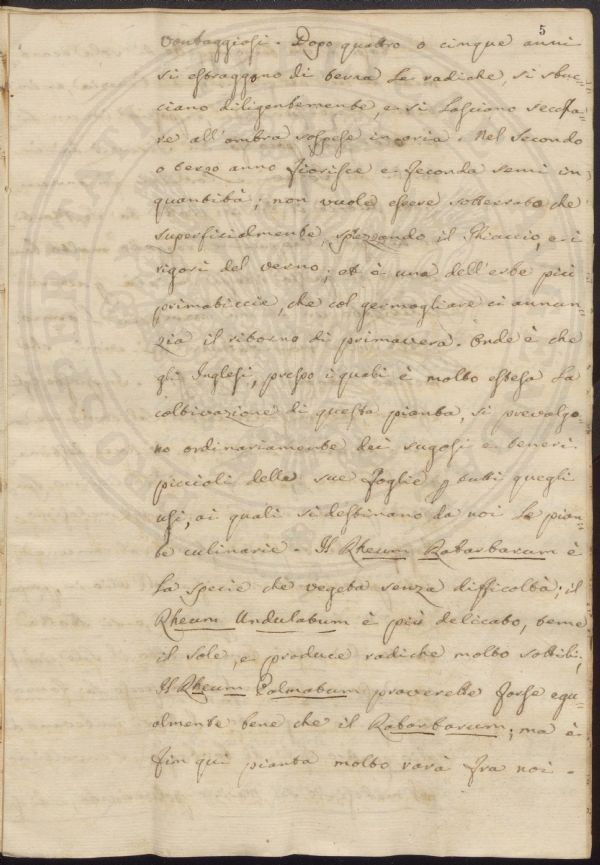 5
vantaggiosi. Dopo quattro o cinque anni
si estraggono di terra le radiche, si sbuc=
ciano diligentemente, e si lasciano secca=
re all'ombra sospese in aria. Nel secondo
o terzo anno fiorisce e feconda semi in
quantità; non vuole essere sotterrata che
superficialmente, sprezzando il ghiaccio, e i
rigori del verno; et è una dell'erbe più
primaticcie, che col germogliare ci annun=
zia il ritorno di primavera. Onde è che
gli Inglesi, presso i quali è molto estesa la
coltivazione di questa pianta, si prevalgo=
no ordinariamente dei sugosi e teneri
piccioli delle sue foglie p tutti quegli
usi, ai quali si destinano da noi le pian=
te culinarie. Il Rheum Rabarbarum è
la specie che vegeta senza difficoltà; il
Rheum Undulatum è più delicato, teme
il sole, e produce radiche molto sottili;
Il Rheum Palmatum proverebbe forse egu=
almente bene che il Rabarbarum; ma è
fin qui pianta molto rara fra noi.